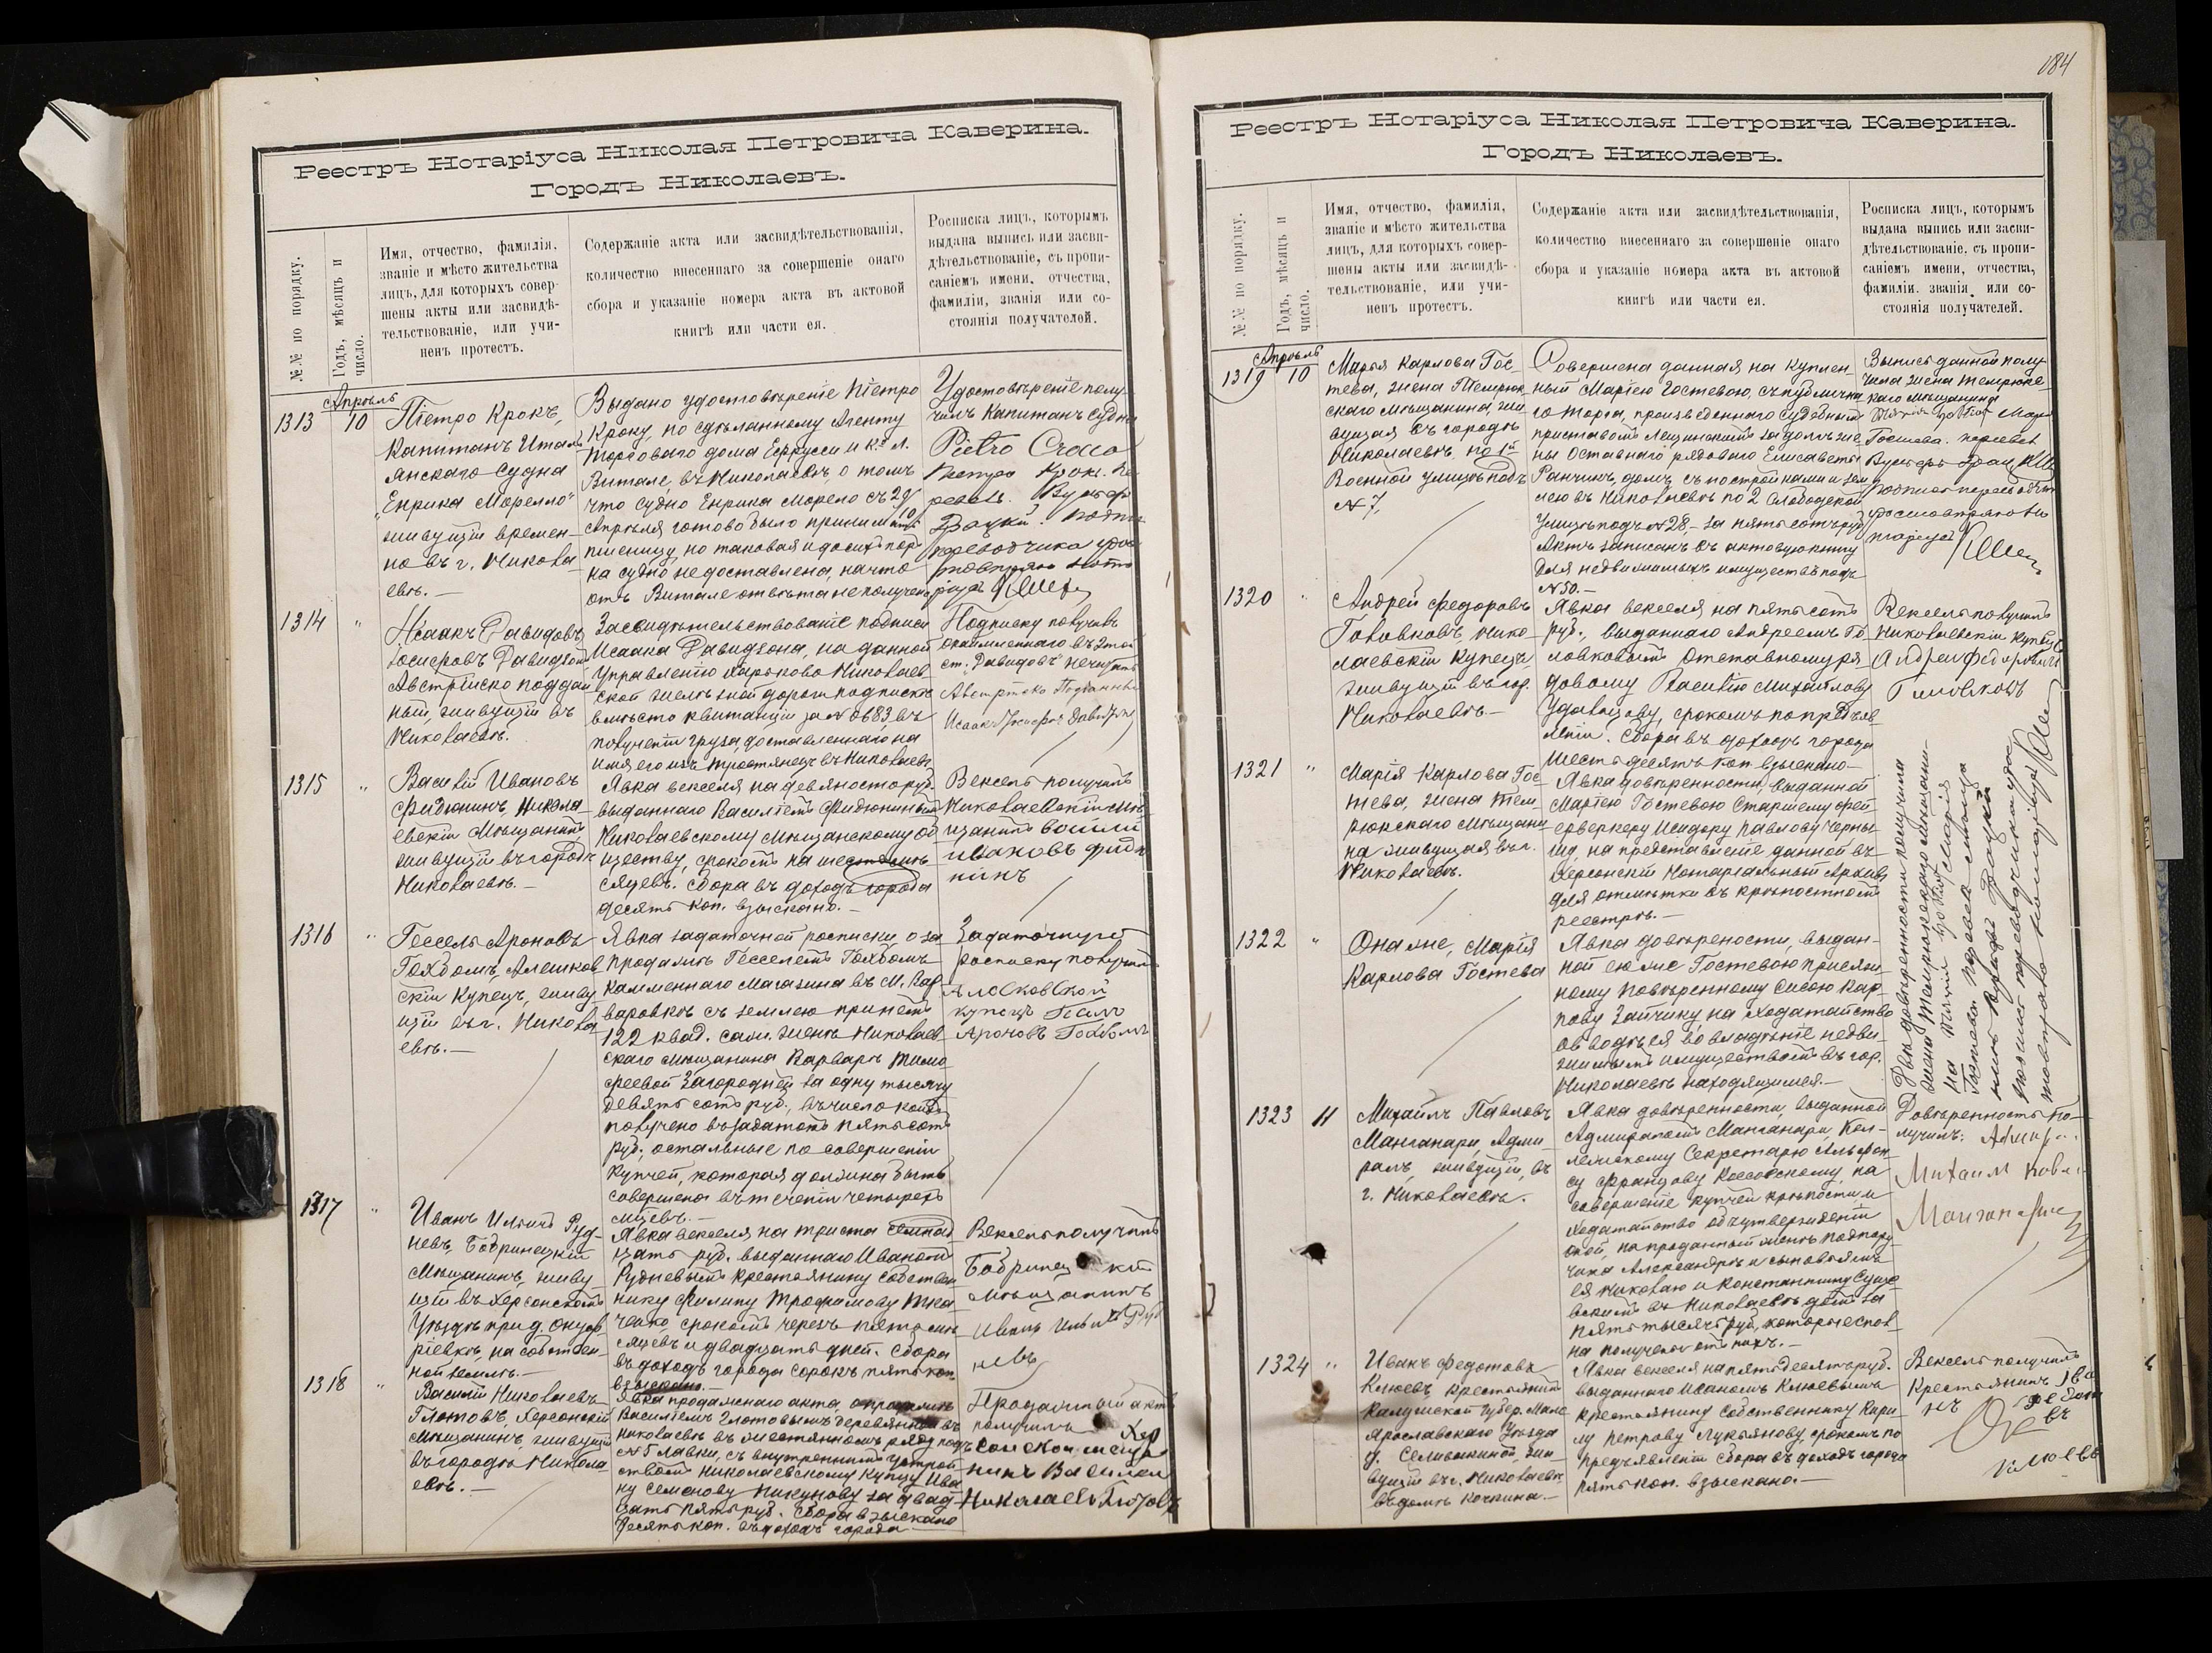 184
Реестръ Нотаріуса Николая Петровича Каверина.
Городъ Николаевъ.
№№ по порядку.
Годъ, мѣсяцъ и число.
Имя, отчество, фамилія,
званіе и мѣсто жительства
лицъ, для которыхъ совер-
шены акты или засвидѣ-
тельствованіе, или учи-
ненъ протестъ.
Содержаніе акта или засвидѣтельствованія,
количество внесеннаго за совершеніе онаго
сбора и указаніе номера акта въ актовой
книгѣ или части ея.
Росписка лицъ, которымъ
выдана выпись или засви-
дѣтельствованіе, съ пропи-
саніемъ имени, отчества,
фамиліи, званія или со-
стоянія получателей.
1313
Апрѣль
10
Піетро Крокъ,
Капитанъ Итал
янскаго судна
„Енрика Морелло"
живущій времен-
но въ г. Никола
евѣ.-
Выдано удостовѣреніе Піетро
Кроку, по сдѣланному Агенту
Торговаго дома Еррусси и Кº Л.
Витале, въ Николаевѣ, о томъ
что судно Енрика Морело съ 29
Апрѣля готово было принимать
пшеницу, но таковая и до сихъ пор
на судно не доставлена, на что
отъ Витале отвѣта не получено
Удостовѣреніе полу-
чилъ Капитанъ судна
Pietro Crocco
Петро Крок. Пе
ревелъ
1314
"
Исаакъ Давидовъ
Іосифовъ Давидзонъ
Австрійско поддан
ный, живущій въ
Николаевѣ.
Засвидѣтельствованіе подписи
Исаака Давидзона, на данной
Управленію Харьково Николаев
ской желѣзной дороги подпискѣ
вмѣсто квитанціи за № 0683 въ
полученіи груза, доставленнаго на
имя его изъ Тростянецъ въ Николаевъ
Подписку получилъ
ст. „Давидовъ"
Исаакъ Іосифов Давидзонъ
1315
"
Василій Ивановъ
Фидюнинъ, Никола
евскій Мѣщанинъ,
живущій въ городѣ
Николаевѣ.-
Явка векселя на девяносто руб.
выданнаго Василіемъ Фидюнинымъ
Николаевскому Мѣщанскому об
ществу, срокомъ на шесть мѣ
сяцевъ. Сбора въ доходъ города
десять коп. взыскано.-
Вексель получилъ
Николаевскій мѣ
щанинъ
ивановъ фидю
нинъ
1316
"
Гессель Ароновъ
Гохбомъ, Алешков
скій Купецъ, живу
щій въ г. Никола
евѣ.-
Явка задаточной росписки о за
продажѣ Гесселемъ Гохбомъ
каменнаго магазина въ М. Вар
варовкѣ съ землею принемъ
122 квад. саж. женѣ Николаев
скаго мѣщанина Варварѣ Тимо
феевой Загородней за одну тысячу
девятьсотъ руб., въ число коихъ
получено въ задатокъ пятьсотъ
руб., остальные по совершеніи
купчей, которая должна быть
совершена въ теченіи четырехъ
мцевъ.-
Задаточную
росписку получилъ
купецъ
Ароновъ Гохбомъ
1317
"
Иванъ Ильичъ Руд-
невъ, Бобринецкій
Мѣщанинъ, живу
щій въ Херсонскомъ
Уѣздѣ при д. Онуф
ріевкѣ, на собствен-
ной землѣ.-
Явка векселя на триста
цать руб. выданнаго Иваномъ
Рудневымъ крестьянину собствен
нику Филипу Трофимову Тка
ченко, срокомъ черезъ пять мѣ
сяцевъ и двадцать дней. Сбора
въ доходъ города сорокъ пять коп.
взыскано.-
Вексель получилъ
Бобринецкій
Мѣщанинъ
Иванъ Ильичъ Руд
невъ
1318
"
Василій Николаевъ
Глотовъ, Херсонскій
Мѣщанинъ, живущій
въ городѣ Никола
евѣ.-
Явка продажнаго акта, о продажѣ
Василіемъ Глотовымъ деревянной въ
Николаевѣ въ жестянномъ ряду подъ
№ 5 лавки, съ внутреннимъ устрой
ствомъ Николаевскому купцу Ива
ну Семенову Пикунову за двад
цать пять руб. Сбора взыскано
десять коп. въ доходъ города
Продажный актъ
получилъ Хер
сонской меща
нинъ Василей
Николаевъ Глотовъ
Реестръ Нотаріуса Николая Петровича Каверина.
Городъ Николаевъ.
№№ по порядку.
Годъ, мѣсяцъ и число.
Имя, отчество, фамилія,
званіе и мѣсто жительства
лицъ, для которыхъ совер-
шены акты или засвидѣ-
тельствованіе, или учи-
ненъ протестъ.
Содержаніе акта или засвидѣтельствованія,
количество внесеннаго за совершеніе онаго
сбора и указаніе номера акта въ актовой
книгѣ или части ея.
Росписка лицъ, которымъ
выдана выпись или засви-
дѣтельствованіе, съ пропи-
саніемъ имени, отчества,
фамиліи, званія или со-
стоянія получателей.
1319
Апрѣль
10
Марья Карлова Гос-
тева, жена Темрюк
скаго мѣщанина, жи
вущая въ городѣ
Николаевѣ, по 1й
Военной улицѣ подъ
№ 7.
Совершена данная на куплен
ный Маріею Гостевою, съ публична
го торга, произведеннаго Судебнымъ
приставомъ Лещинскимъ за долгъ же
ны Отставнаго рядоваго Елисаветы
Ранчикъ, домъ съ постройками и зем
лею въ Николаевѣ по 2 Слободской
улицѣ подъ № 28,- за пятьсотъ руб
Актъ записанъ въ актовую книгу
для недвижимыхъ имуществъ подъ
№ 50.-
Выпись данной полу-
чила жена Темрюкс-
каго мѣщанина
Гостева. перевел
1320
"
Андрей Федоровъ
Головковъ, Нико
лаевскій Купецъ,
живущій въ гор.
Николаевѣ.-
Явка векселя на пятьсотъ
руб., выданнаго Андреемъ Го
ловковымъ Отставному ря
довому Василію Михайлову
Удовцову, срокомъ по предъяв
леніи. Сбора въ доходъ города
шестьдесятъ коп. взыскано-
Вексель получилъ
Николаевскій купецъ
Андрей Федоровичъ
Головковъ
1321
"
Марія Карлова Гос-
тева, жена Тем-
рюкскаго Мѣщани
на живущая въ г.
Николаевѣ.
Явка довѣренности, выданной
Маріею Гостевою Старшему фей-
ерверкеру Исидору Павлову Черны-
шу, на представленіе данной въ
Херсонскій Нотаріальный Архивъ
для отмѣтки въ крѣпостномъ
реестрѣ.-
1322
"
Она же, Марія
Карлова Гостева
Явка довѣрености, выдан-
ной ею же Гостевою присяж-
ному Повѣренному Сисою Кар-
пову Зайчику, на Ходатайство
об вводѣ ея во владѣніе недви-
жимымъ имуществомъ въ гор.
Николаевѣ находящимся.-
Двѣ довѣренности получила
жена Темрюкскаго мѣщани-
1323
11
Михаилъ Павловъ
Манганари, Адми
ралъ, живущій въ
г. Николаевѣ.
Явка довѣренности, выданной
Адмираломъ Манганари, Кол-
лежскому Секретарю Альфон
су Францову Коссовскому, на
совершеніе купчей крѣпости и
ходатайство объ утвержденіи
оной, на проданный женѣ Подпору-
чика Александрѣ и сыновьямъ
ея Николаю и Константину
въ Николаевѣ домъ за
пять тысячъ руб., которые спол-
на получены отъ нихъ.-
Довѣренность по-
лучилъ. Адмир
Михаил Павл
Манганари
1324
"
Иванъ Федотовъ
Клюевъ крестьянинъ
Калужской Губер. Мало
Ярославскаго Уѣзда
д. Селивакиной, жи
вущій въ г. Николаевѣ
въ домѣ Кочкина.-
Явка векселя на пятьдесятъ руб.
выданнаго Иваномъ Клюевымъ
крестьянину собственнику Кири-
лу Петрову Лукьянову, срокомъ по
предъявленіи Сбора въ доходъ города
пять коп. взыскано-
Вексель получилъ
Крестьянинъ Ива
нъ Федот
въ
Клюевъ